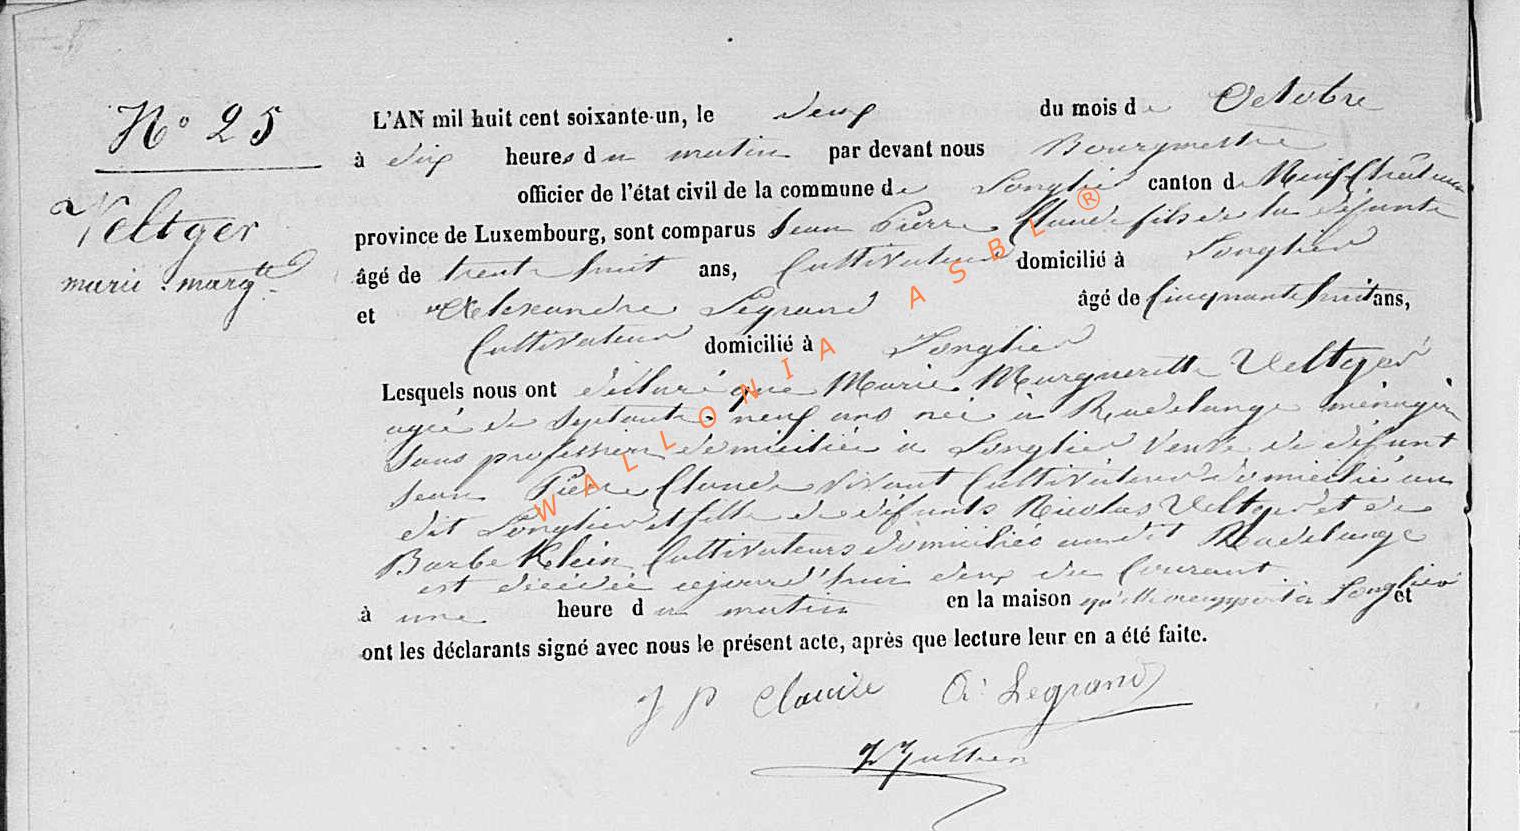 N° 25
Veltger
marie marg.te
L'AN mil huit cent soixante-un, le deux du mois de Octobre
à dix heures du matin par devant nous Bourgmestre
officier de l'état civil de la commune de Longlier canton de Neufchâteau
province de Luxembourg, sont comparus Jean Pierre Claude fils de la défunte
âgé de trente huit ans, Cultivateur domicilié à Longlier
et Alexandre Legrand âgé de Cinquante huit ans,
Cultivateur domicilié à Longlier
Lesquels nous ont déclaré que Marie Marguerette Veltger
agée de septante neuf ans née à Radelange ménagère
sans profession domiciliée à Longlier veuve de défunt
Jean Pierre Claude vivant Cultivateur domicilié au
dit Longlier et fille de défunts Nicolas Veltger et de
Barbe Klein Cultivateurs domiciliés au dit Radelange
est décédée cejourd'hui deux du Courant
à une heure du matin en la maison qu'elle occupait à Longlier et
ont les déclarants signé avec nous le présent acte, après que lecture leur en a été faite.
J P Claude A: Legrand
WALLONIA ASBL ®